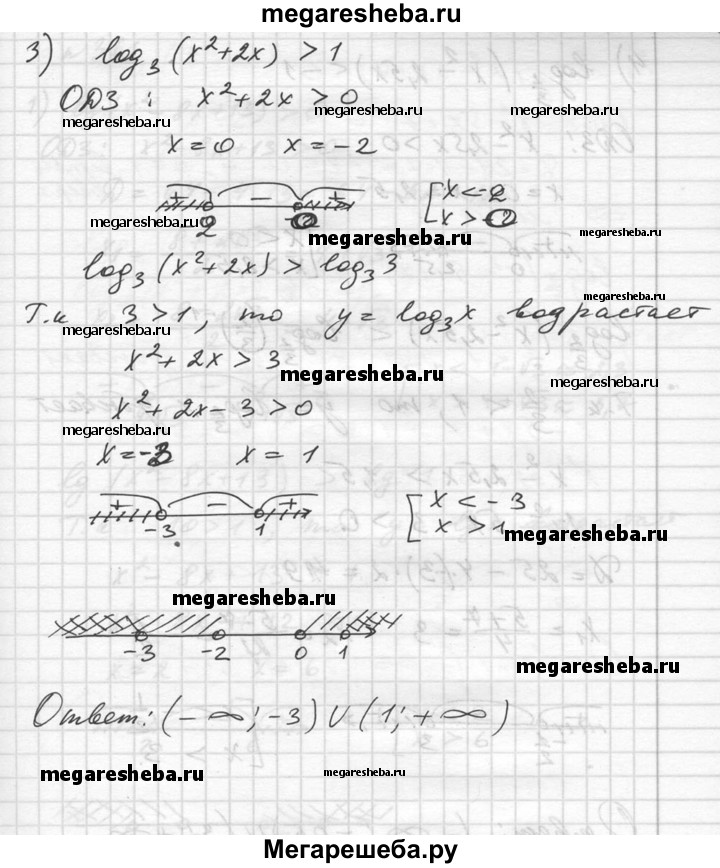 megaresheba.ru
3) log₃(x²+2x) > 1
ОДЗ: x²+2x > 0
megaresheba.ru megaresheba.ru megaresheba.ru
x=0 x=-2
megaresheba.ru
+ - + [x<-2
megaresheba.ru 2 x>
megaresheba.ru megaresheba.ru
log₃(x²+2x) > log₃3
megaresheba.ru
Т.к 3>1, то y=log₃x возрастает
megaresheba.ru
x²+2x>3
megaresheba.ru megaresheba.ru
x²+2x-3>0
megaresheba.ru
x=-3 x=1
+ - + [x<-3
-3 1 x>1
megaresheba.ru
megaresheba.ru
-3 -2 0 1
megaresheba.ru
Ответ: (-∞;-3)∪(1;+∞)
megaresheba.ru megaresheba.ru
Мегарешеба.ру